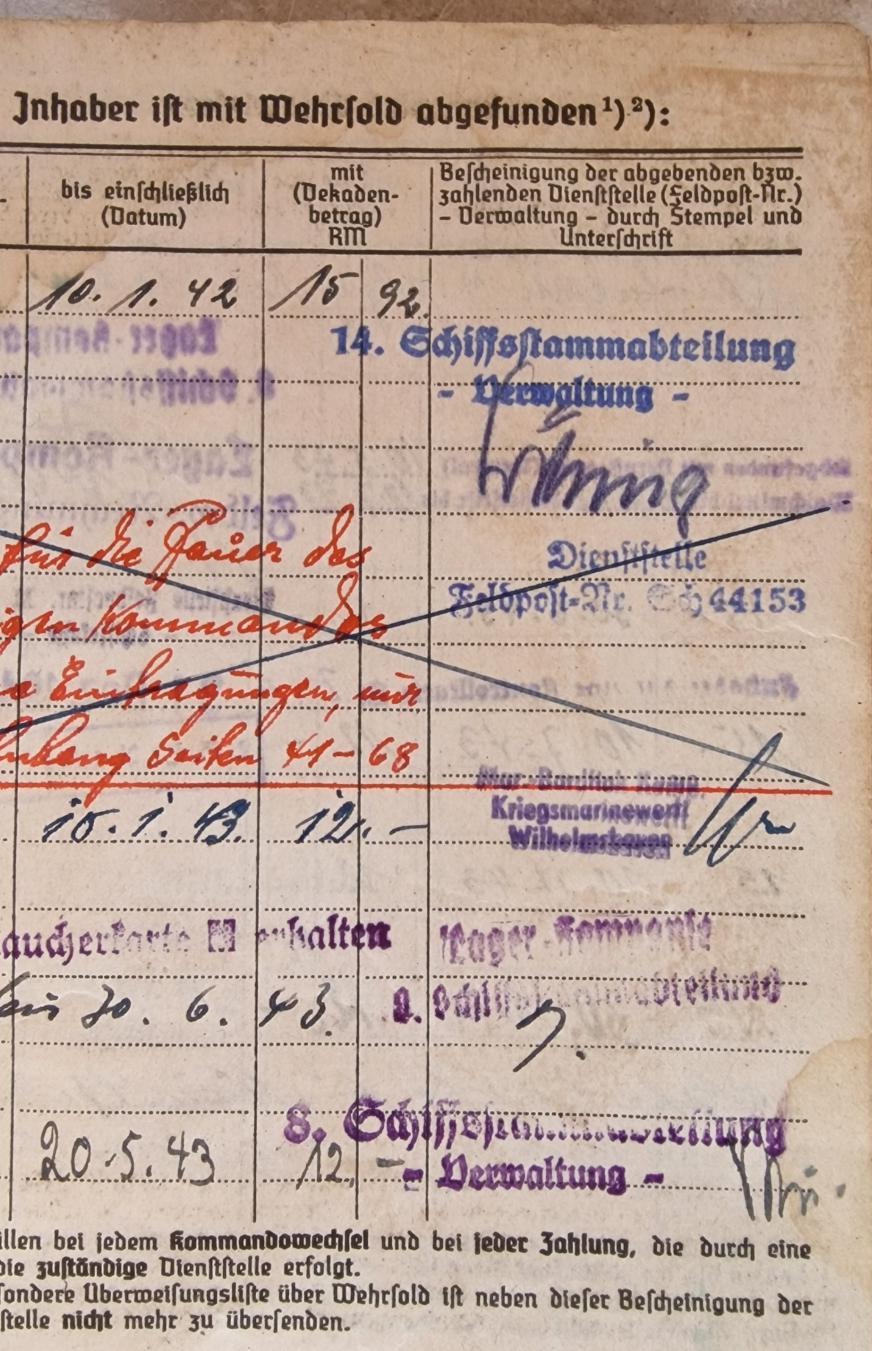 Inhaber ist mit Wehrsold abgefunden¹)²):
bis einschließlich
(Datum)
mit
(Dekaden-
betrag)
RM
Bescheinigung der abgebenden bzw.
zahlenden Dienststelle (Feldpost-Nr.)
- Verwaltung - durch Stempel und
Unterschrift
10. 1. 42 15 92.
14. Schiffsstammabteilung
- Verwaltung -
für die Dauer des
Dienststelle
Feldpost-Nr. Sch 44153
gen Kommandos
e Eintragungen, nur
Anhang Seiten 41-68
Kriegsmarinewerft
Wilhelmshaven
10. 1. 43. 12. -
aucherkarte M erhalten
Lager-Kompanie
8. Schiffsstammabteilung
bis 30. 6. 43.
8. Schiffsstammabteilung
- Verwaltung -
20.5.43 12. -
llen bei jedem Kommandowechsel und bei jeder Zahlung, die durch eine
die zuständige Dienststelle erfolgt.
sondere Überweisungsliste über Wehrsold ist neben dieser Bescheinigung der
stelle nicht mehr zu übersenden.